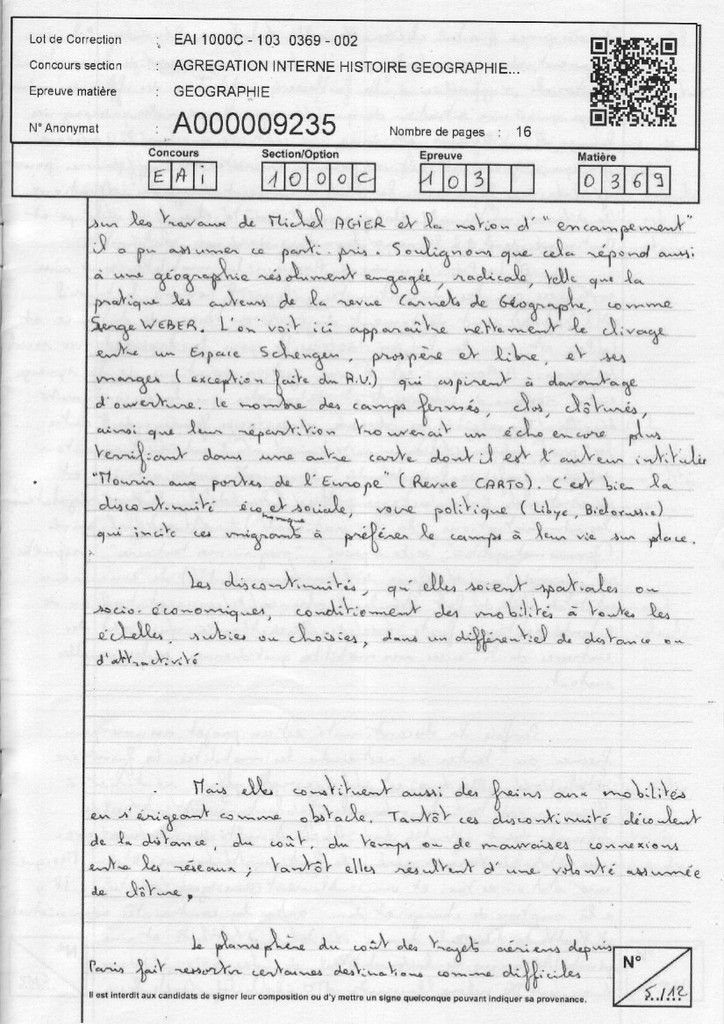 Lot de Correction : EAI 1000C - 103 0369 - 002
Concours section : AGREGATION INTERNE HISTOIRE GEOGRAPHIE...
Epreuve matière : GEOGRAPHIE
N° Anonymat : A000009235 Nombre de pages : 16
Concours Section/Option Epreuve Matière
E A i 1 0 0 0 C 1 0 3 0 3 6 9
sur les travaux de Michel AGIER et la notion d' "encampement"
il a pu assumer ce parti-pris. Soulignons que cela répond aussi
à une géographie résolument engagée, radicale, telle que la
pratique les auteurs de la revue Carnets de Géographe, comme
Serge WEBER. L'on voit ici apparaître nettement le clivage
entre un Espace Schengen, prospère et libre, et ses
marges (exception faite du R.U.) qui aspirent à davantage
d'ouverture. Le nombre des camps fermés, clos, clôturés,
ainsi que leur répartition trouverait un écho encore plus
terrifiant dans une autre carte dont il est l'auteur intitulée
"Mourir aux portes de l'Europe" (Revue CARTO). C'est bien la
discontinuité économique et sociale, voire politique (Libye, Biélorussie)
qui incite ces migrants à préférer le camps à leur vie sur place.
Les discontinuités, qu'elles soient spatiales ou
socio-économiques, conditionnent des mobilités à toutes les
échelles, subies ou choisies, dans un différentiel de distance ou
d'attractivité
Mais elles constituent aussi des freins aux mobilités
en s'érigeant comme obstacle. Tantôt ces discontinuité découlent
de la distance, du coût, du temps ou de mauvaises connexions
entre les réseaux ; tantôt elles résultent d'une volonté assumée
de clôture.
Le planisphère du coût des trajets aériens depuis
Paris fait ressortir certaines destinations comme difficiles
N° 5../12
Il est interdit aux candidats de signer leur composition ou d'y mettre un signe quelconque pouvant indiquer sa provenance.